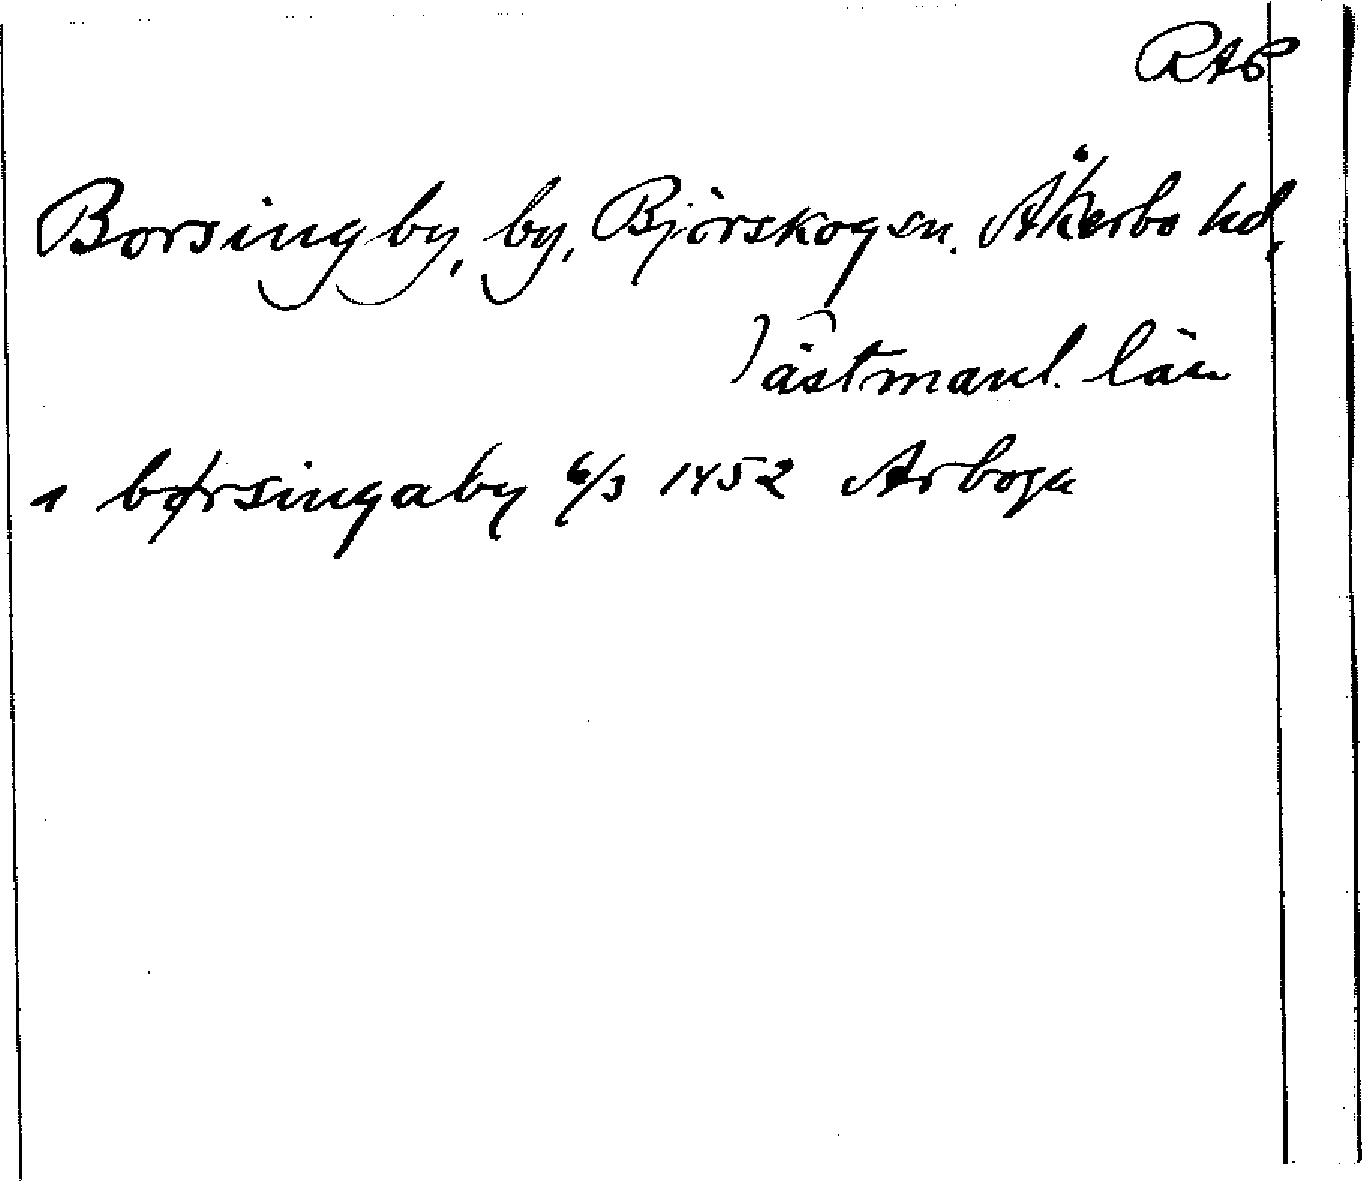 RAP
Borsingby, by, Björskog sn. Åkerbo hd,
Västmanl. län
1 børsingaby 6/3 1452 Arboga